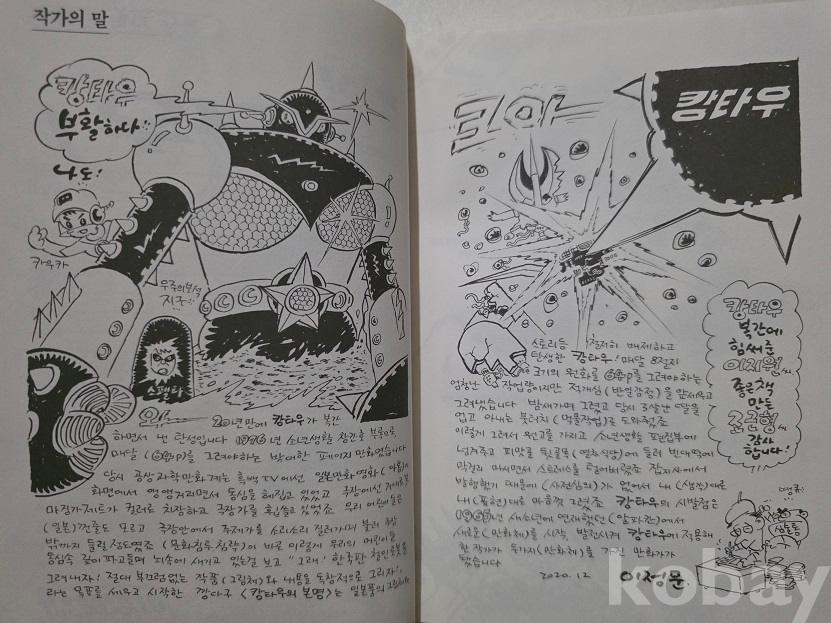 작가의 말
캉타우
부활하다!!
나도!
카우카
우주의 보석
지구!!
스펠타
와! 20년만에 캉타우가 복간
하면서 낸 탄성입니다 1976년 소년생활 창간호 부록으로
매달 (64p)를 그려야하는 방대한 페이지 만화였습니다
당시 공상과학만화계는 흑백TV에선 일본만화영화 (아톰)
화면에서 앵앵거리면서 동심을 헤집고 있었고 극장에선 거대로봇
마징가제트가 컬러로 치장하고 극장가를 휩쓸고 있었죠 우리 어린이들은
(일본)것들도 모르고 극장안에서 주제가를 소리소리 질러가며 불러 극장
밖까지 들릴 정도였죠 (문화침투, 침략)이 바로 이렇게 우리의 어린이들
동심속 깊이 파고들며 뇌속에 새기고 있는걸 보고 "그래" 한국판 철인로봇을
그려내자! 절대 부끄럼없는 작품(그림체)와 내용을 독창적으로 그리자!
라는 목표를 세우고 시작한 깡다구 (캉타우의 본명)는 일본풍의 그림체와
코아
캉타우
캉타우
복간에
힘써준
이지원씨
좋은책
만든
조금형씨
감사
합니다!
스토리를 철저히 배제하고
탄생한 캉타우! 매달 8절지
크기의 원화로 64p를 그려야하는
엄청난 작업량이지만 적개심(반일감정)을 앞세우고
그려냈습니다 밤새가며 그렸고 당시 3살난 딸을
업고 아내는 붓터치 (먹물작업)로 도와줬죠
이렇게 그려서 원고를 가지고 소년생활 편집부에
넘겨주고 피맛골 뒷골목 (영화식당)에 들러 빈대떡에
막걸리 마시면서 스트레스를 털어버렸죠 잡지사에서
발행했기 때문에 (사전심의)가 없어서 내 (생각)대로
내 (표현)대로 마음껏 그렸죠 캉타우의 시발점은
1965년 새소년에 연재했던 (알파칸)에서
새로운 (만화체)를 시작, 발전시켜 캉타우에 적용해
한 작가가 두가지 (만화체)를 가진 만화가가
됐습니다
2020. 12 이정문.
심술통
kobay